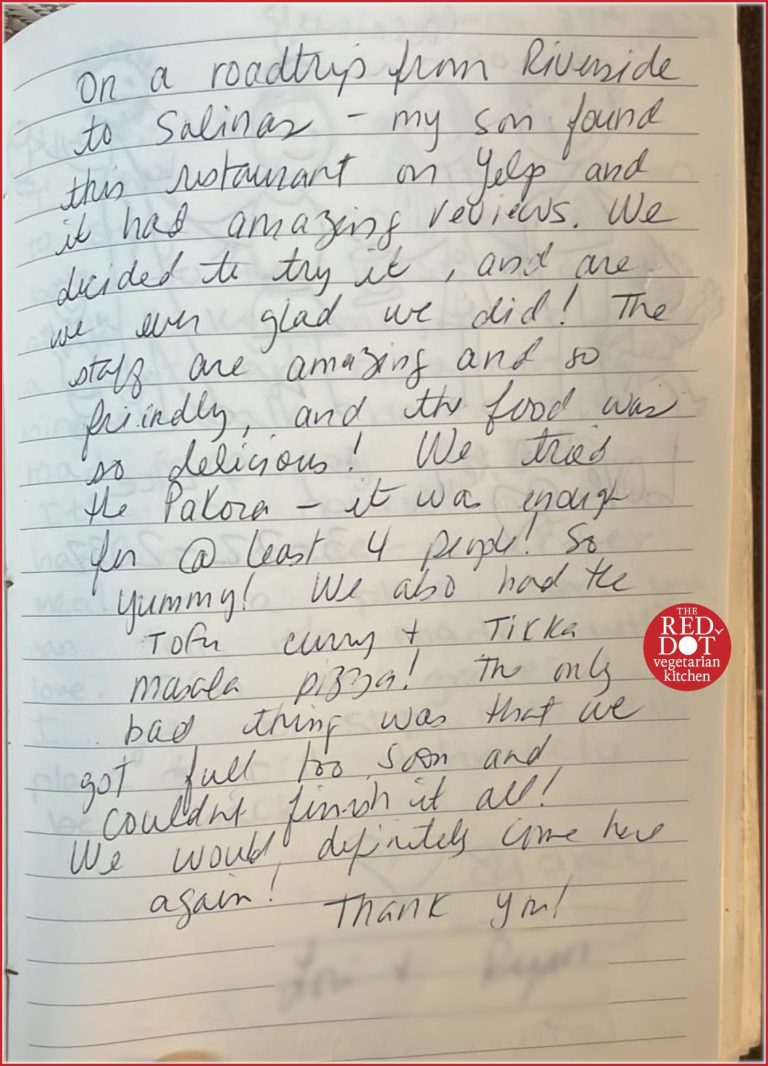 On a roadtrip from Riverside
to Salinas - my son found
this restaurant on Yelp and
it had amazing reviews. We
decided to try it, and are
we ever glad we did! The
staff are amazing and so
friendly, and the food was
so delicious! We tried
the Pakora - it was enough
for @ least 4 people! So
yummy! We also had the
Tofu curry + Tikka
masala pizza! The only
bad thing was that we
got full too soon and
couldn't finish it all!
We would definitely come here
again!
Thank you!
THE
RED
DOT
vegetarian
kitchen